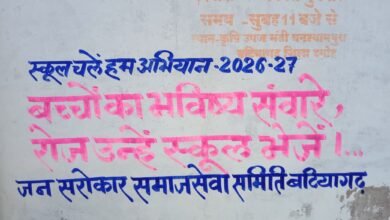 समय - सुबह 11 बजे से
स्थान-कृषि उपज मंडी घनश्यामपुरा
बटियागढ़ जिला दमोह
स्कूल चलें हम अभियान-2026-27
बच्चों का भविष्य संवारे,
रोज उन्हें स्कूल भेजें।...
जन सरोकार समाजसेवा समिति बटियागढ़